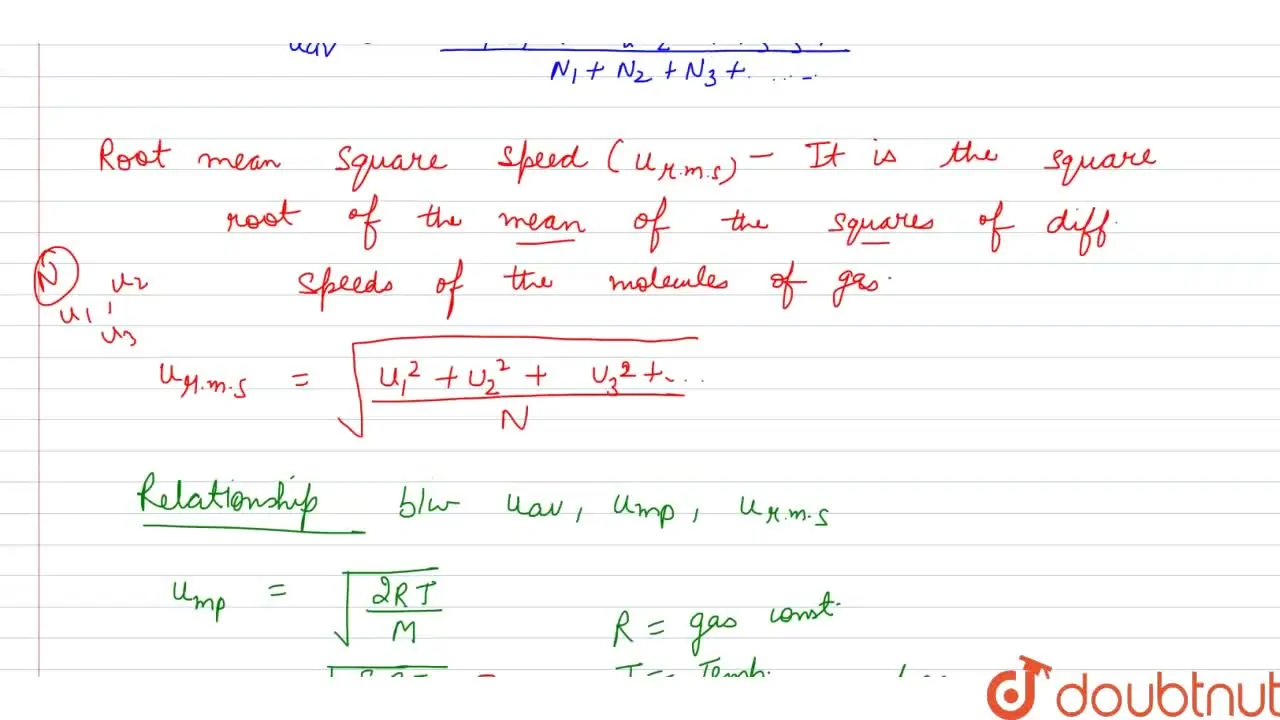 uav =
N1 + N2 + N3 + .....
Root mean square speed (ur.m.s) - It is the square
root of the mean of the squares of diff.
N u2 speeds of the molecules of gas.
u1,
u3
ur.m.s = √((u1² + u2² + u3² + ...)/N)
Relationship b/w uav, ump, ur.m.s
ump = √(2RT/M)
R = gas const.
T = Temp.
doubtnut